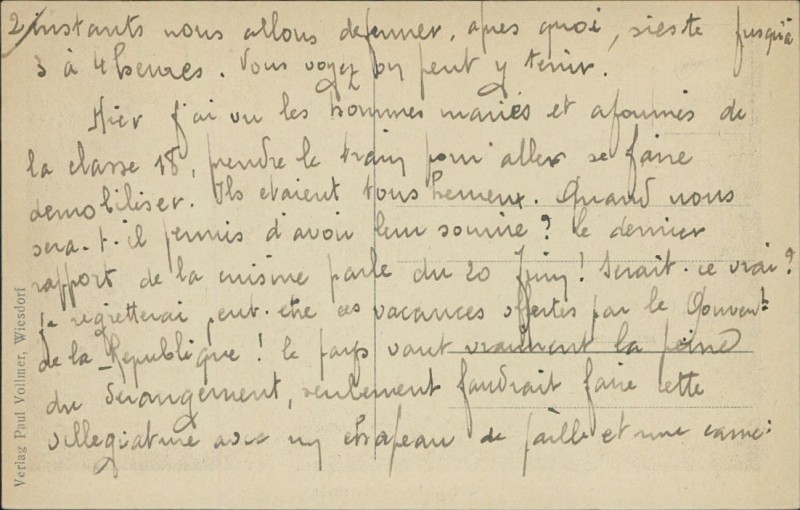 2/ instants nous allons dejeuner, apres quoi, sieste jusqu'à
3 à 4 heures. Vous voyez on peut y tenir.
Hier j'ai vu les hommes mariés et afournés de
la classe 18, prendre le train pour aller se faire
demobiliser. Ils etaient tous heureux. Quand nous
sera-t-il permis d'avoir leur sourire? le dernier
rapport de la cuisine parle du 20 Juin! Serait-ce vrai?
je regretterai peut-etre ces vacances offertes par le Gouvent
de la Republique! le pays vaut vraiment la peine
du derangement, seulement faudrait faire cette
villegiature avec un chapeau de paille et une canne.
Verlag Paul Vollmer, Wiesdorf